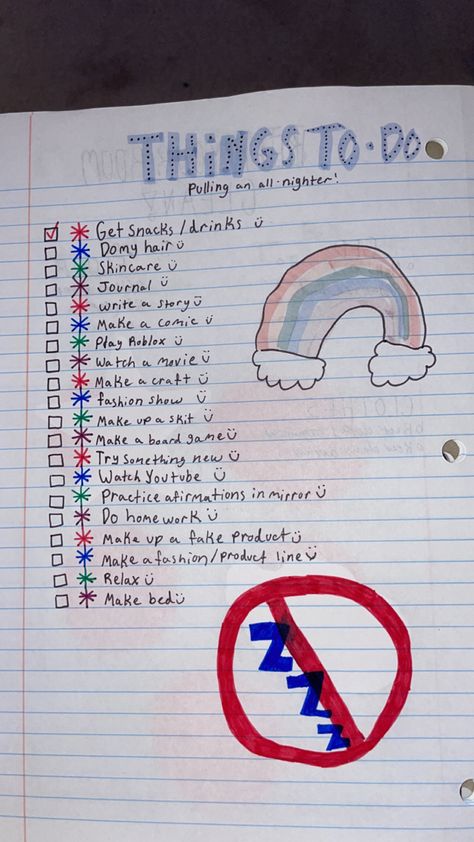 THINGS TO·DO
Pulling an all·nighter!
Get Snacks/drinks
Do my hair
Skincare
Journal
write a story
Make a comic
Play Roblox
Watch a movie
Make a craft
fashion show
Make up a skit
Make a board game
Try something new
Watch Youtube
Practice afirmations in mirror
Do homework
Make up a fake product
Make a fashion/product line
Relax
Make bed
Z
Z
Z